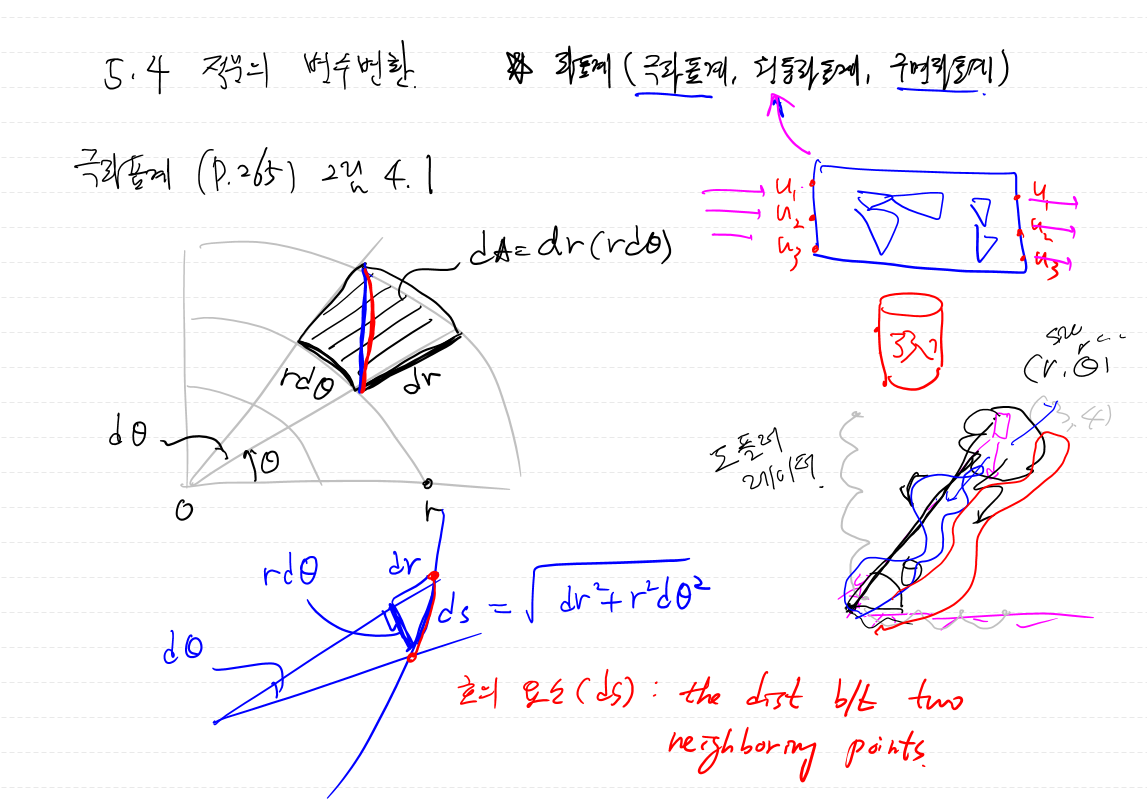 5.4 적분의 변수변환.
※ 좌표계 (극좌표계, 원통좌표계, 구면좌표계)
극좌표계 (P.265) 그림 4.1
dA = dr(rdθ)
u₁
u₂
u₃
u₁
u₂
u₃
rdθ
dr
dθ
θ
0
r
(r, θ)
(3, 4)
도플러
레이더.
θ
rdθ
dr
ds = √dr²+r²dθ²
dθ
호의 요소(ds) : the dist b/t two
neighboring points.